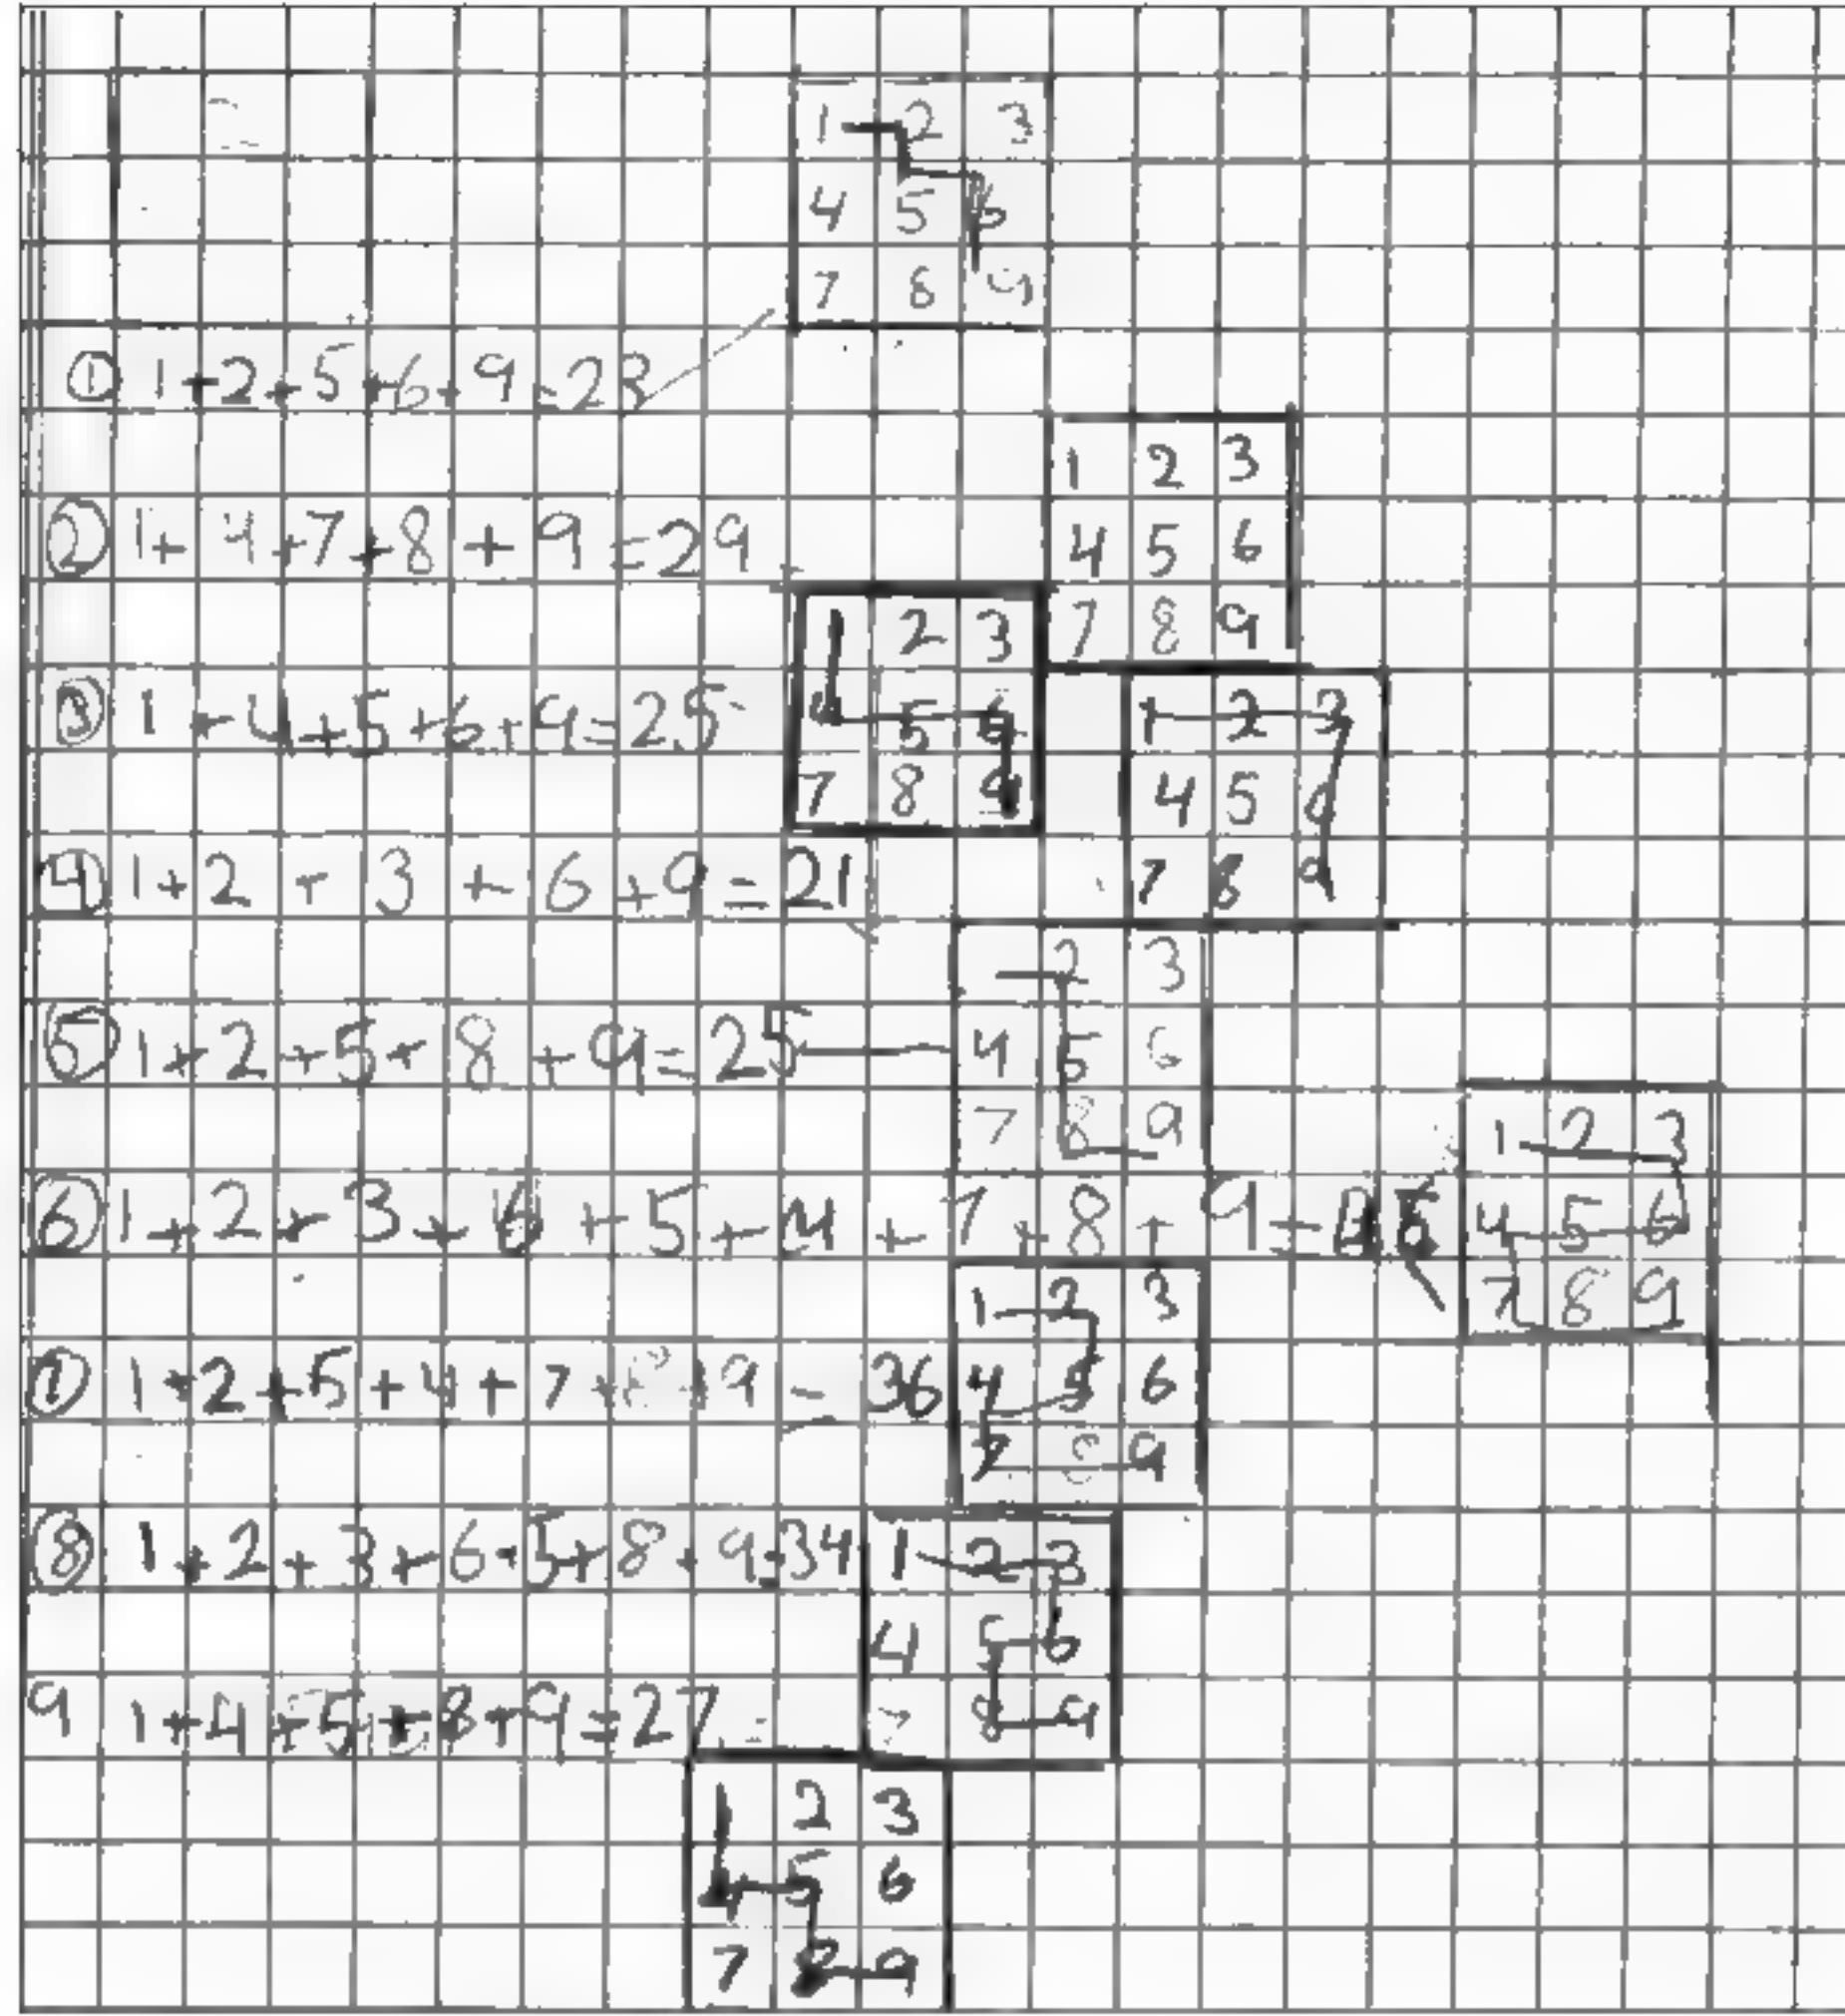 1 2 3
4 5 6
7 8 9
① 1+2+5+6+9=23
1 2 3
4 5 6
7 8 9
② 1+4+7+8+9=29
1 2 3
4 5 6
7 8 9
③ 1+4+5+6+9=25
1 2 3
4 5 6
7 8 9
④ 1+2+3+6+9=21
2 3
4 5 6
7 8 9
⑤ 1+2+5+8+9=25
1 2 3
4 5 6
7 8 9
⑥ 1+2+3+6+5+4+7+8+9=
1 2 3
4 5 6
7 8 9
⑦ 1+2+5+4+7+8+9=36
1 2 3
4 5 6
7 8 9
⑧ 1+2+3+6+5+8+9=34
9 1+4+5+8+9=27
1 2 3
4 5 6
7 8 9